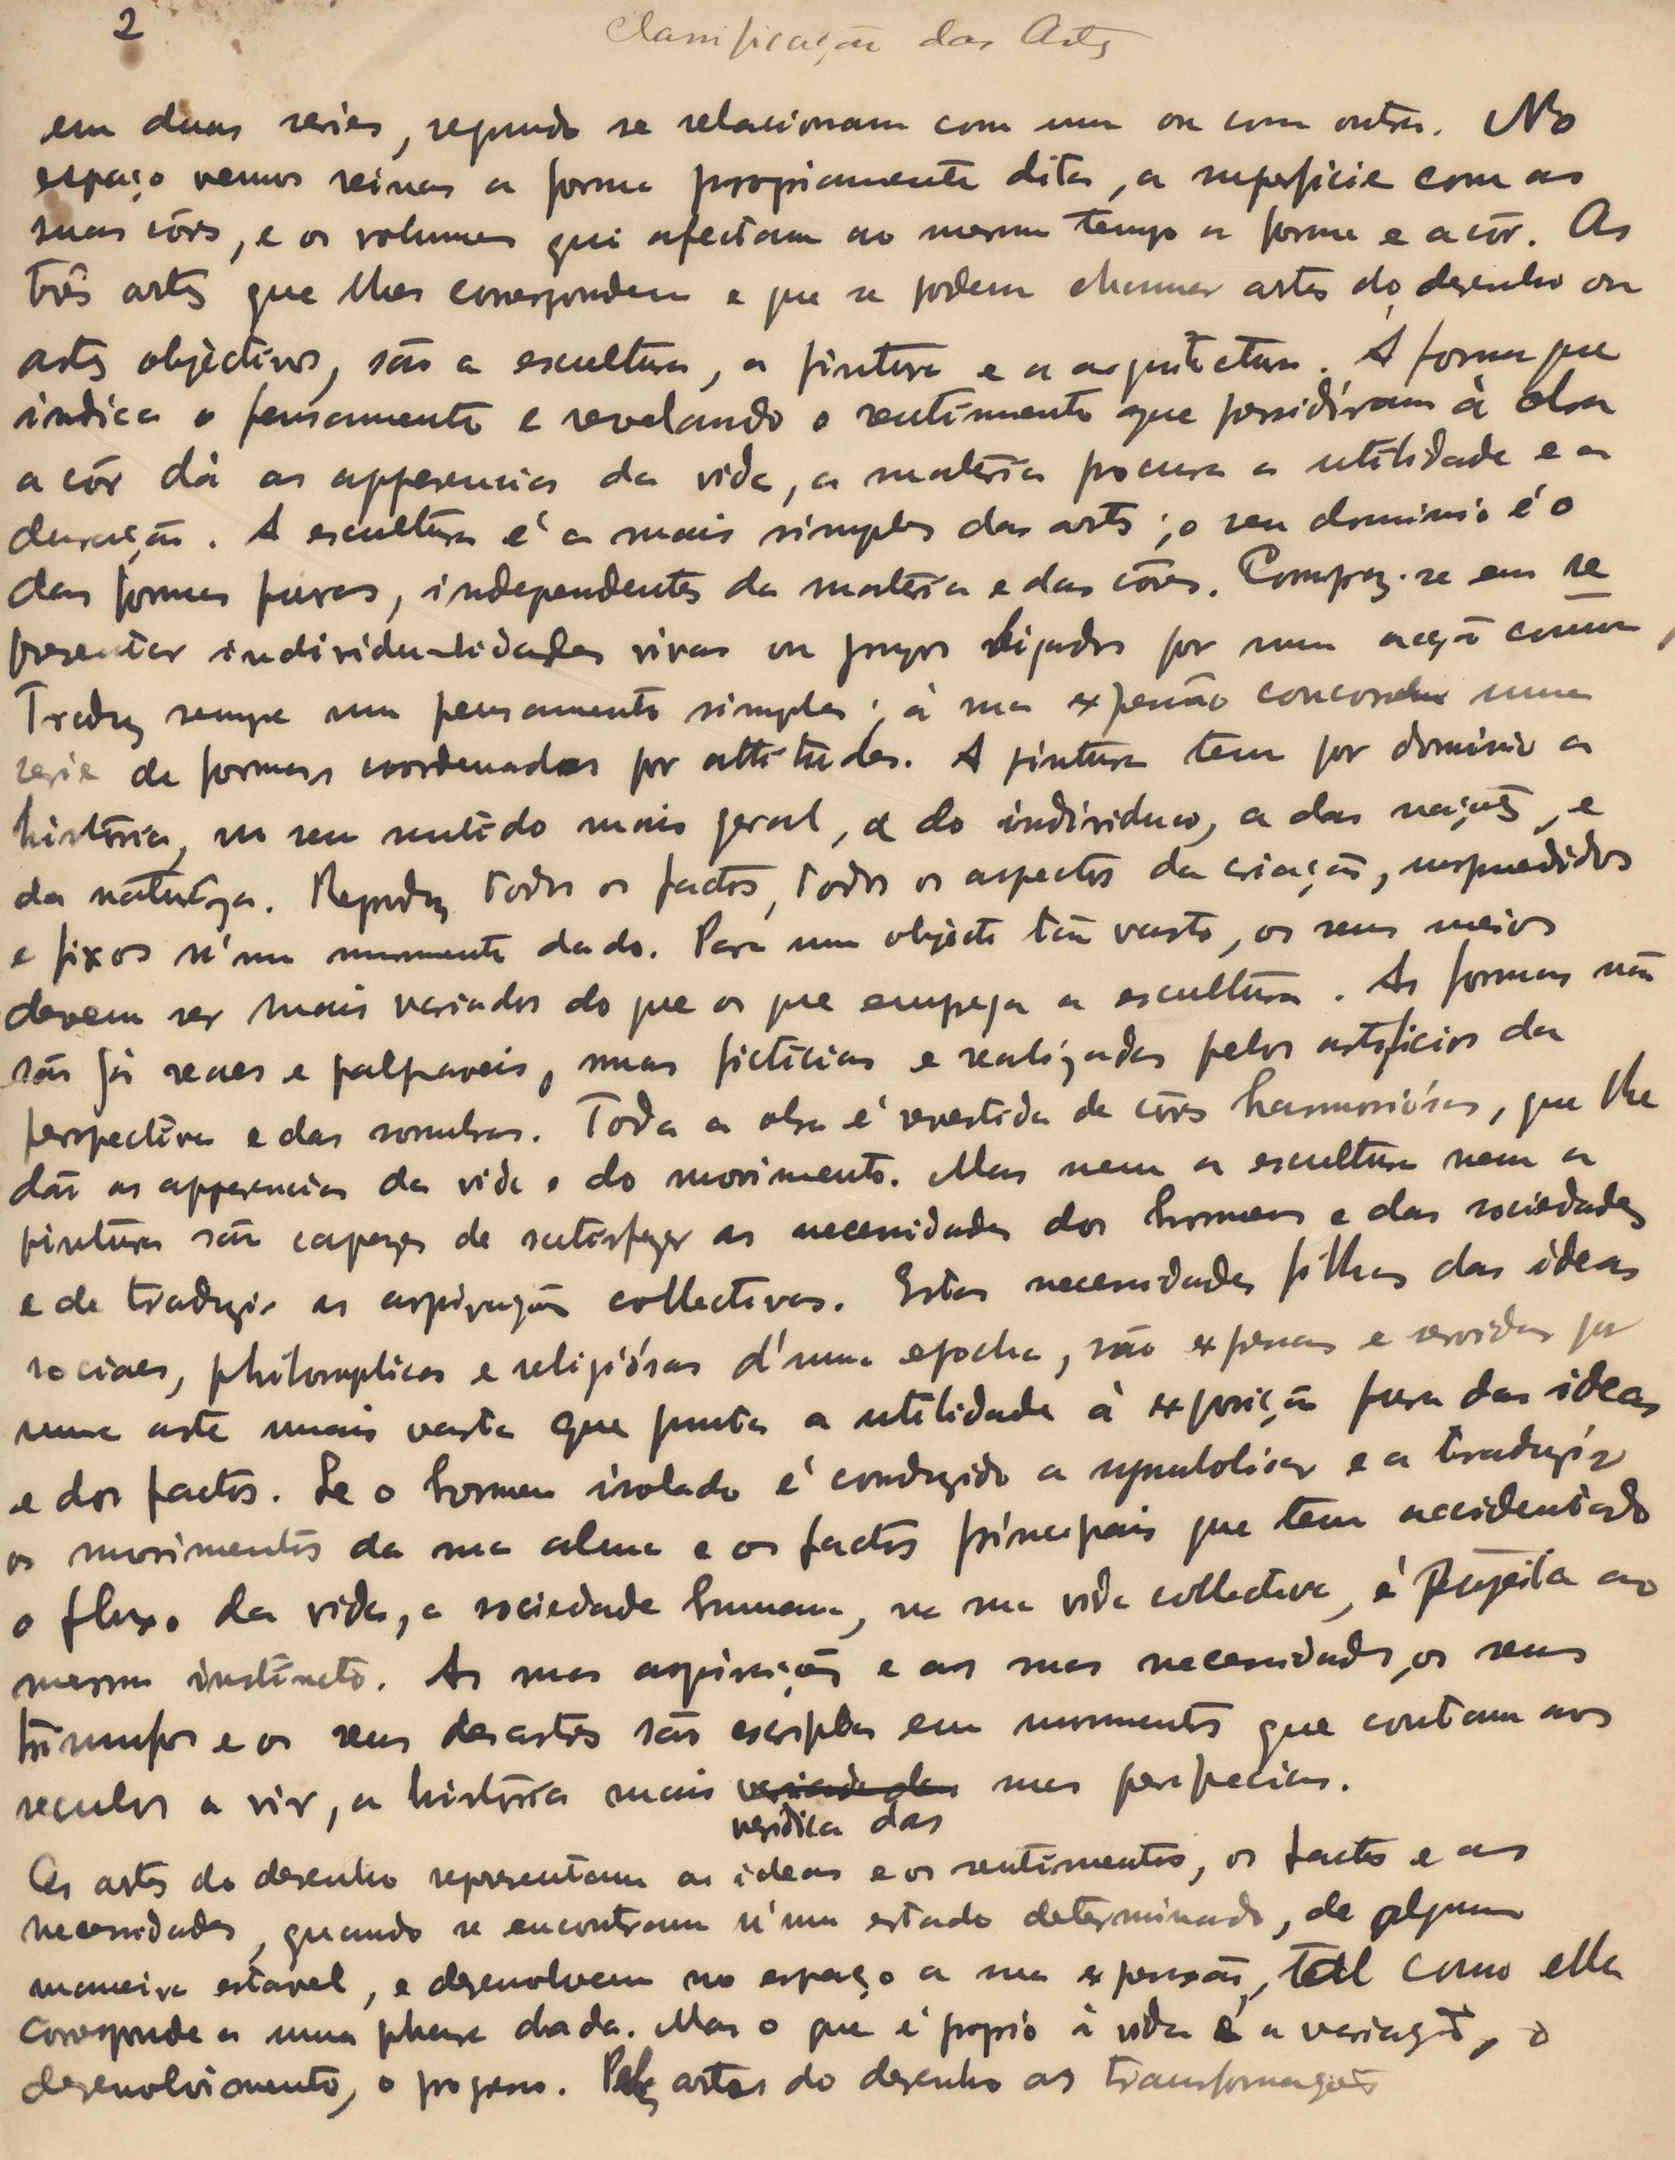 2
Classificação das Artes
em duas series, segundo se relacionam com um ou com outro. No
espaço vemos reinar a forma propriamente dita, a superficie com as
suas côres, e os volumes que afectam ao mesmo tempo a forma e a côr. As
três artes que lhes correspondem e que se podem chamar artes do desenho ou
artes objectivas, são a escultura, a pintura e a arquitectura. A forma que
indica o pensamento e revelando o sentimento que presidiram à obra
a côr dá as apparencias da vida, a materia procura a utilidade e a
duração. A escultura é a mais simples das artes; o seu dominio é o
das formas puras, independentes da materia e das côres. Compraz-se em re
presentar individualidades vivas ou grupos ligados por uma acção comum,
Traduz sempre um pensamento simples; à sua expressão concordam uma
serie de formas coordenadas por attitudes. A pintura tem por dominio a
história, no seu sentido mais geral, a do individuo, a das nações, e
da natureza. Reproduz todos os factos, todos os aspectos da criação, surpreendidos
e fixos n'um momento dado. Para um objecto tão vasto, os seus meios
devem ser mais variados do que os que emprega a escultura. As formas não
são já reaes e palpaveis, mas ficticias e realizadas pelos artificios da
perspectiva e das sombras. Toda a obra é revestida de côres harmoniósas, que lhe
dão as apparencias da vida e do movimento. Mas nem a escultura nem a
pintura são capazes de satisfazer as necessidades dos homens e das sociedades
e de traduzir as aspirações collectivas. Estas necessidades filhas das ideas
sociaes, philosophicas e religiósas d'uma epocha, são expressas e servidas por
uma arte mais vasta que junta a utilidade à exposição pura das ideas
e dos factos. Se o homem isolado é conduzido a symbolisar e a traduzir
os movimentos da sua alma e os factos principais que tem accidentado
o fluxo da vida, a sociedade humana, na sua vida collectiva, é sujeita ao
mesmo instincto. As suas aspirações e as suas necessidades, os seus
triumfos e os seus desastres são escriptos em monumentos que contam aos
seculos a vir, a história mais variada das suas peripecias.
veridica das
As artes do desenho representam as ideas e os sentimentos, os factos e as
necessidades, quando se encontram n'um estado determinado, de alguma
maneira estavel, e desenvolvem no espaço a sua expressão, tal como ella
corresponde a uma phase dada. Mas o que é proprio à vida é a variação, o
desenvolvimento, o progresso. Pelas artes do desenho as transformações